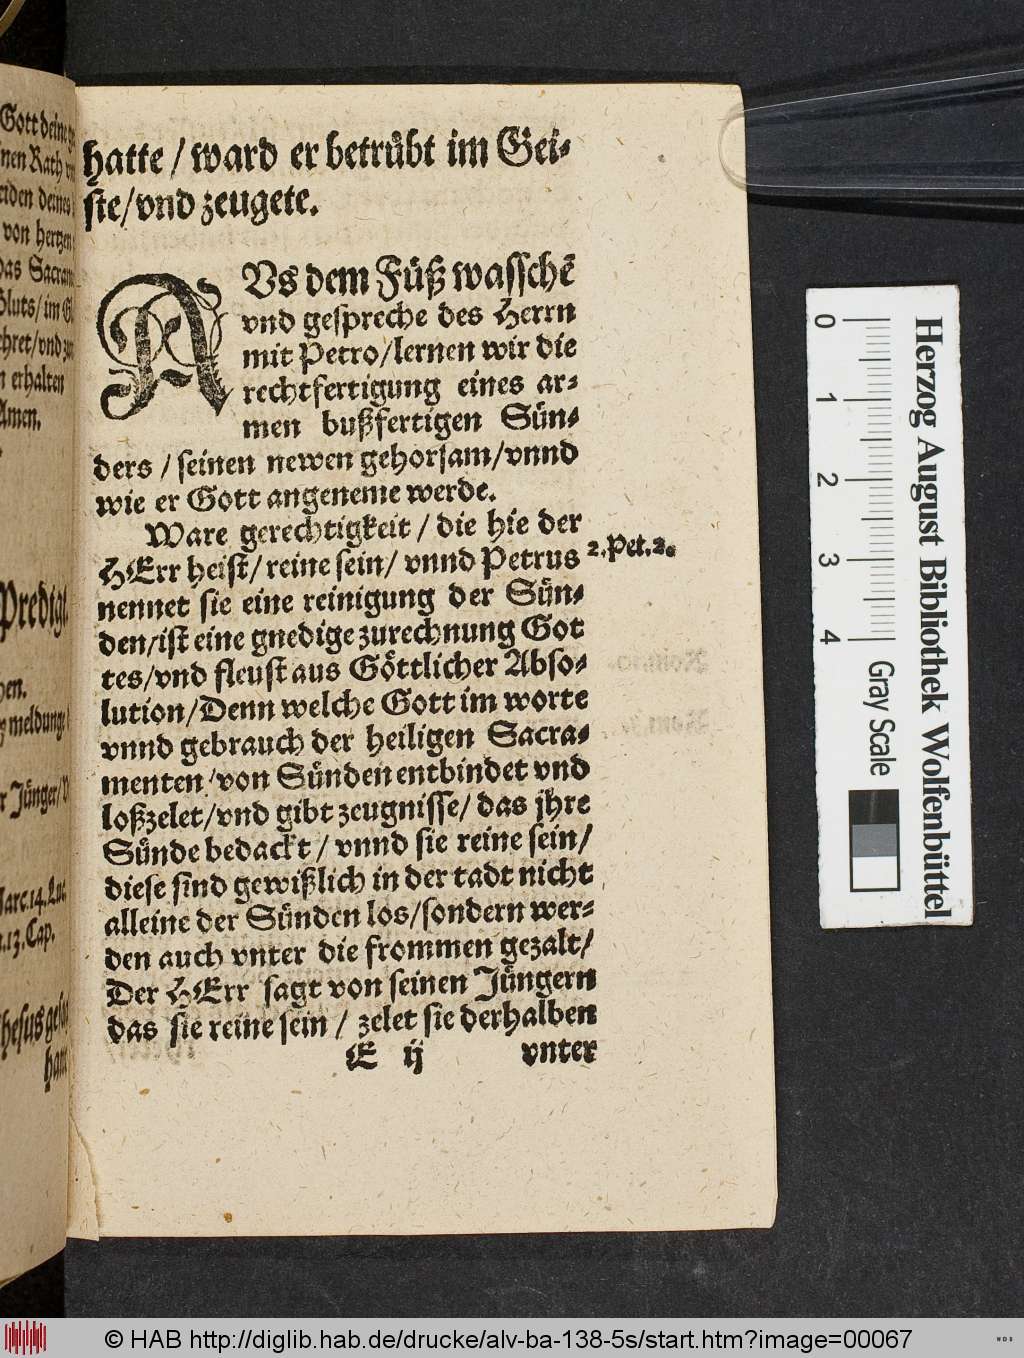 hatte / ward er betrübt im Gei-
ste / vnd zeugete.
AVs dem Füß wasschē
vnd gespreche des Herrn
mit Petro / lernen wir die
rechtfertigung eines ar-
men bußfertigen Sün-
ders / seinen newen gehorsam / vnnd
wie er Gott angeneme werde.
Ware gerechtigkeit / die hie der
HErr heist / reine sein / vnnd Petrus
2. Pet. 2.
nennet sie eine reinigung der Sün-
den / ist eine gnedige zurechnung Got
tes / vnd fleust aus Göttlicher Abso-
lution / Denn welche Gott im worte
vnnd gebrauch der heiligen Sacra-
menten / von Sünden entbindet vnd
loßzelet / vnd gibt zeugnisse / das jhre
Sünde bedackt / vnnd sie reine sein /
diese sind gewißlich in der tadt nicht
alleine der Sünden los / sondern wer-
den auch vnter die frommen gezalt /
Der HErr sagt von seinen Jüngern
das sie reine sein / zelet sie derhalben
E ij
vnter
Gott deine
Rath
deines
von hertzen
das Sacram
Bluts / im
vnd
erhalten
Amen.
Predigt
meldunge
Jünger /
14. Luc.
13. Cap.
hatt
0 1 2 3 4
Herzog August Bibliothek Wolfenbüttel
Gray Scale
© HAB http://diglib.hab.de/drucke/alv-ba-138-5s/start.htm?image=00067